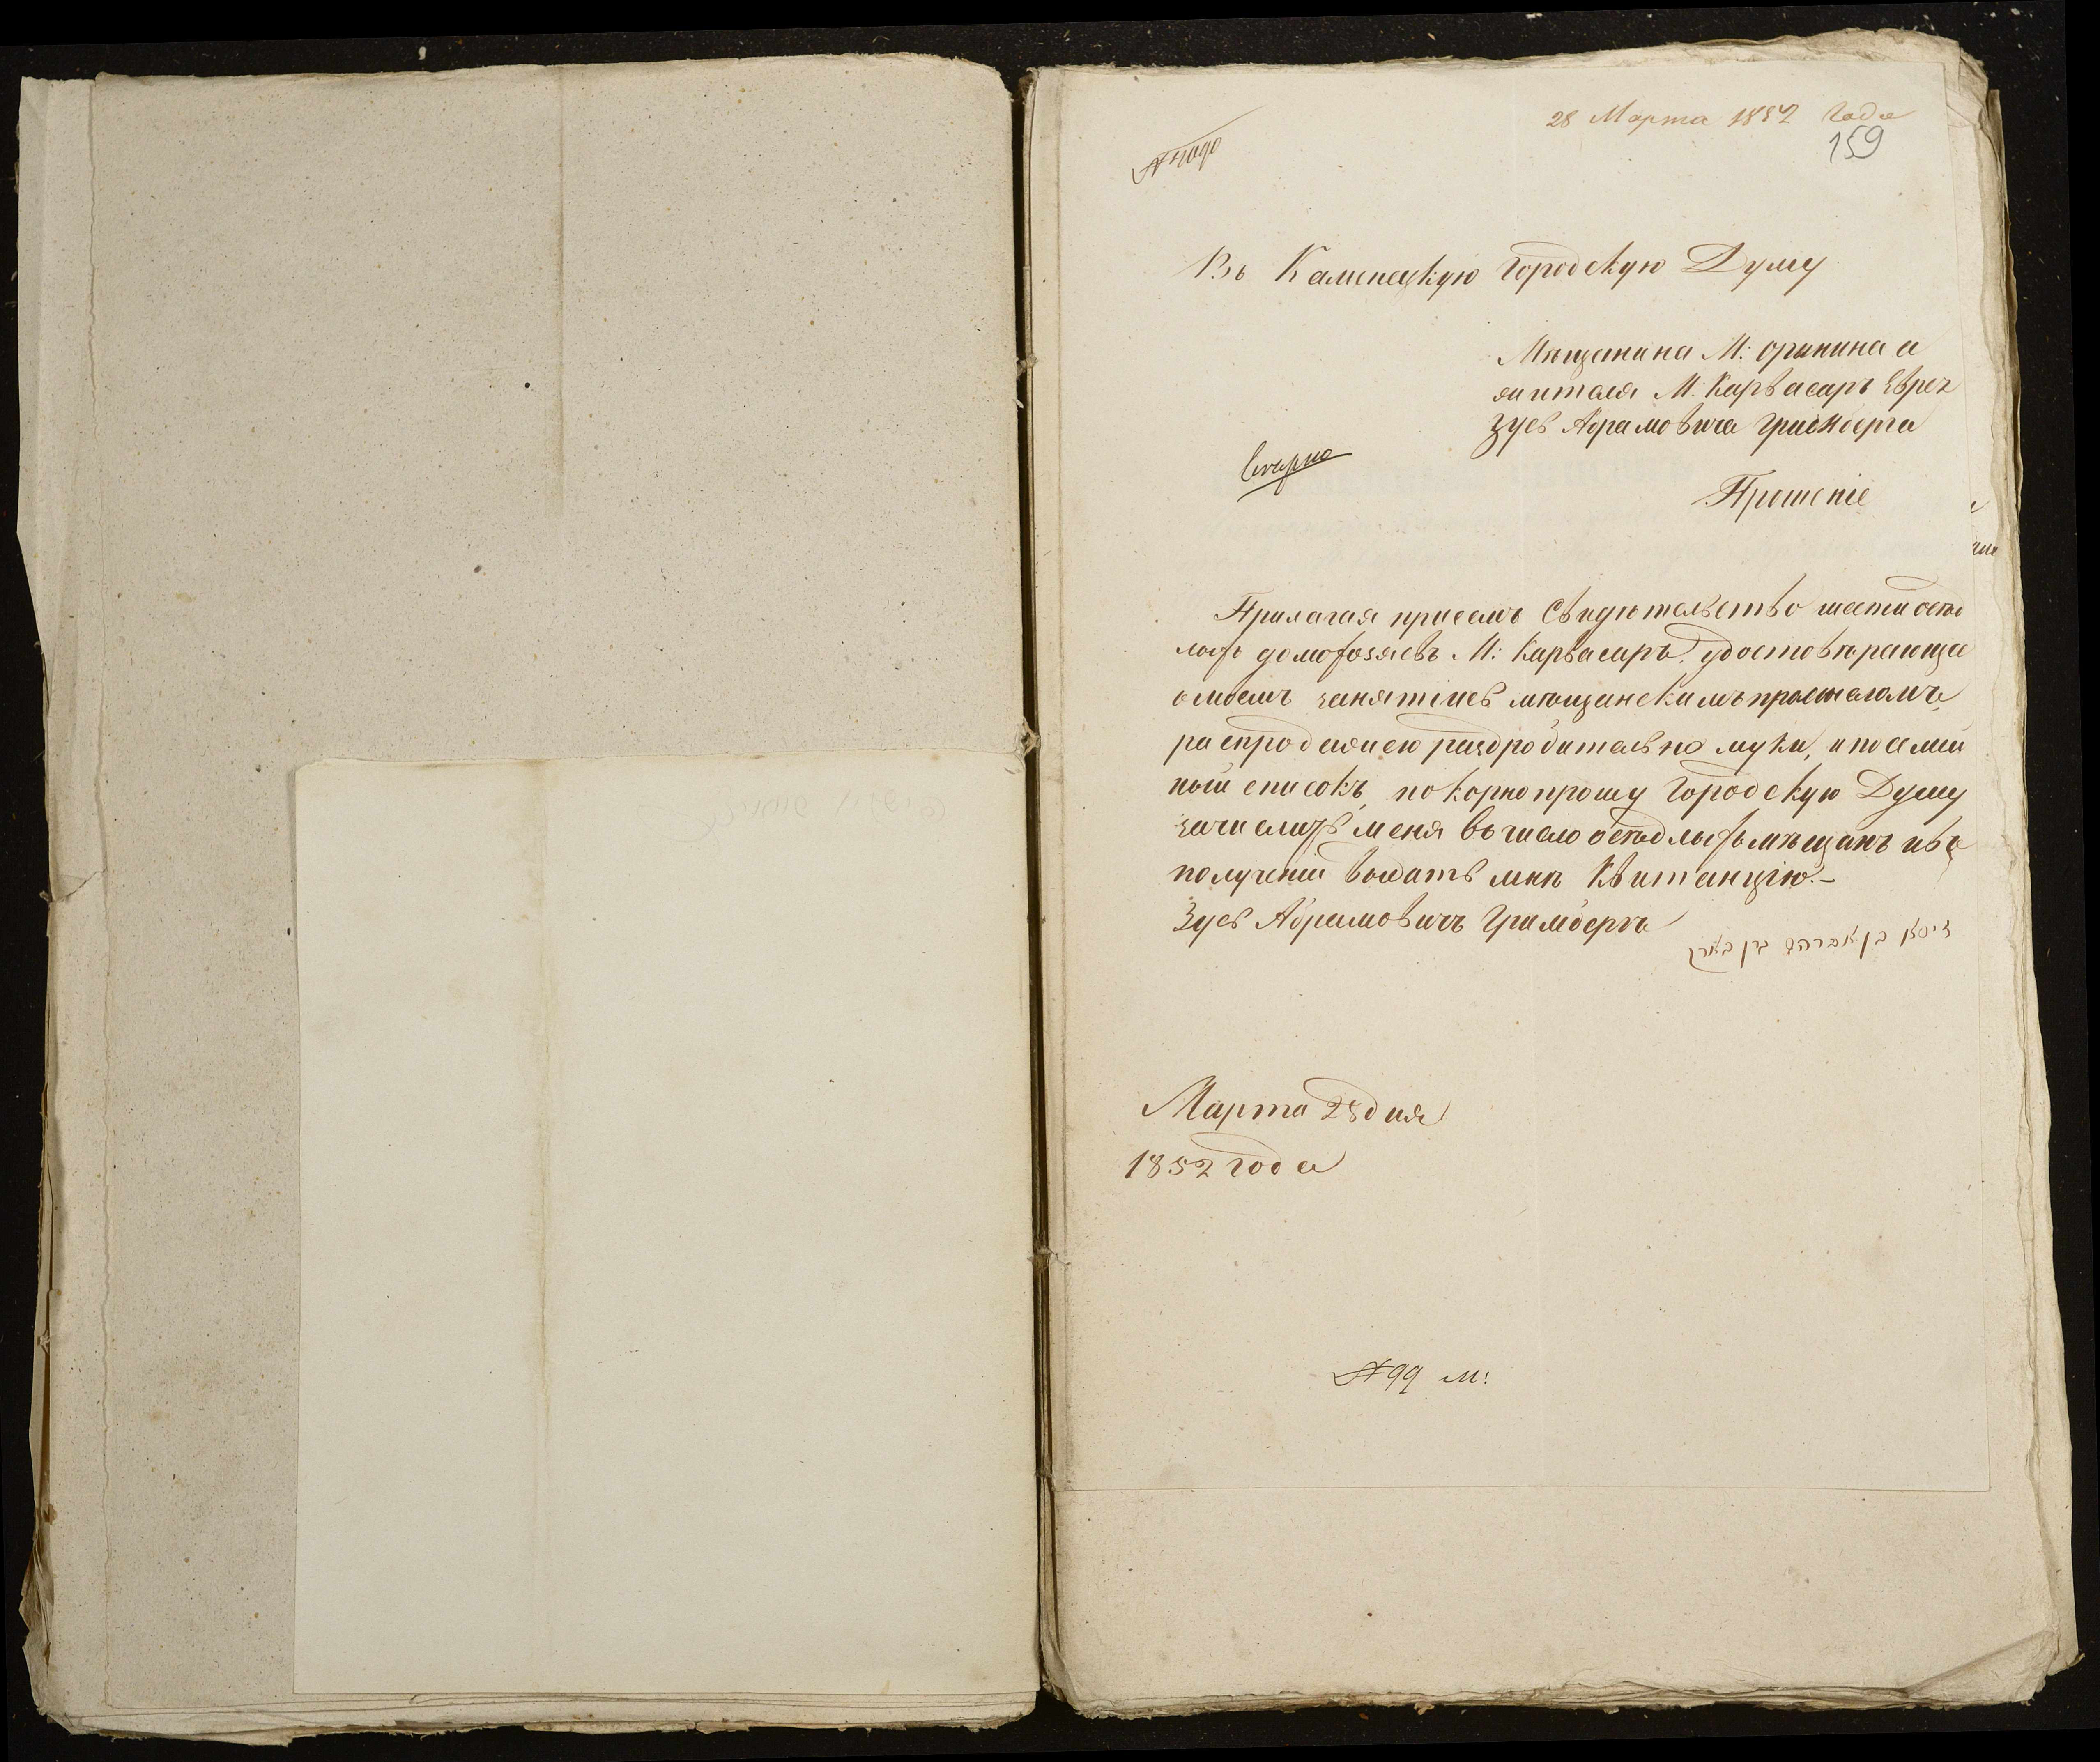 28 Марта 1852 года
159
№ 4090
Въ Каменецкую Городскую Думу
Мѣщанина М: Оринина а
жителя М. Карвасаръ Еврея
Зусь Абрамовича Гринберга
Прошеніе
Прилагая присемъ Свидѣтельство шести осѣд
лыхъ домохозяевъ М: Карвасаръ, удостовѣряюще
о моемъ занятіисъ мѣщанскимъ промысломъ,
распродажею раздробительно муки, и посемей
ный списокъ, покорно прошу Городскую Думу
зачислить меня въ число осѣдлыхъ мѣщанъ ивъ
полученіи выдать мнѣ Квитанцію.-
Зусь Абрамовичъ Гримбергъ
זיסא בן אברהם
Марта 28 дня
1852 года
№ 99 М: